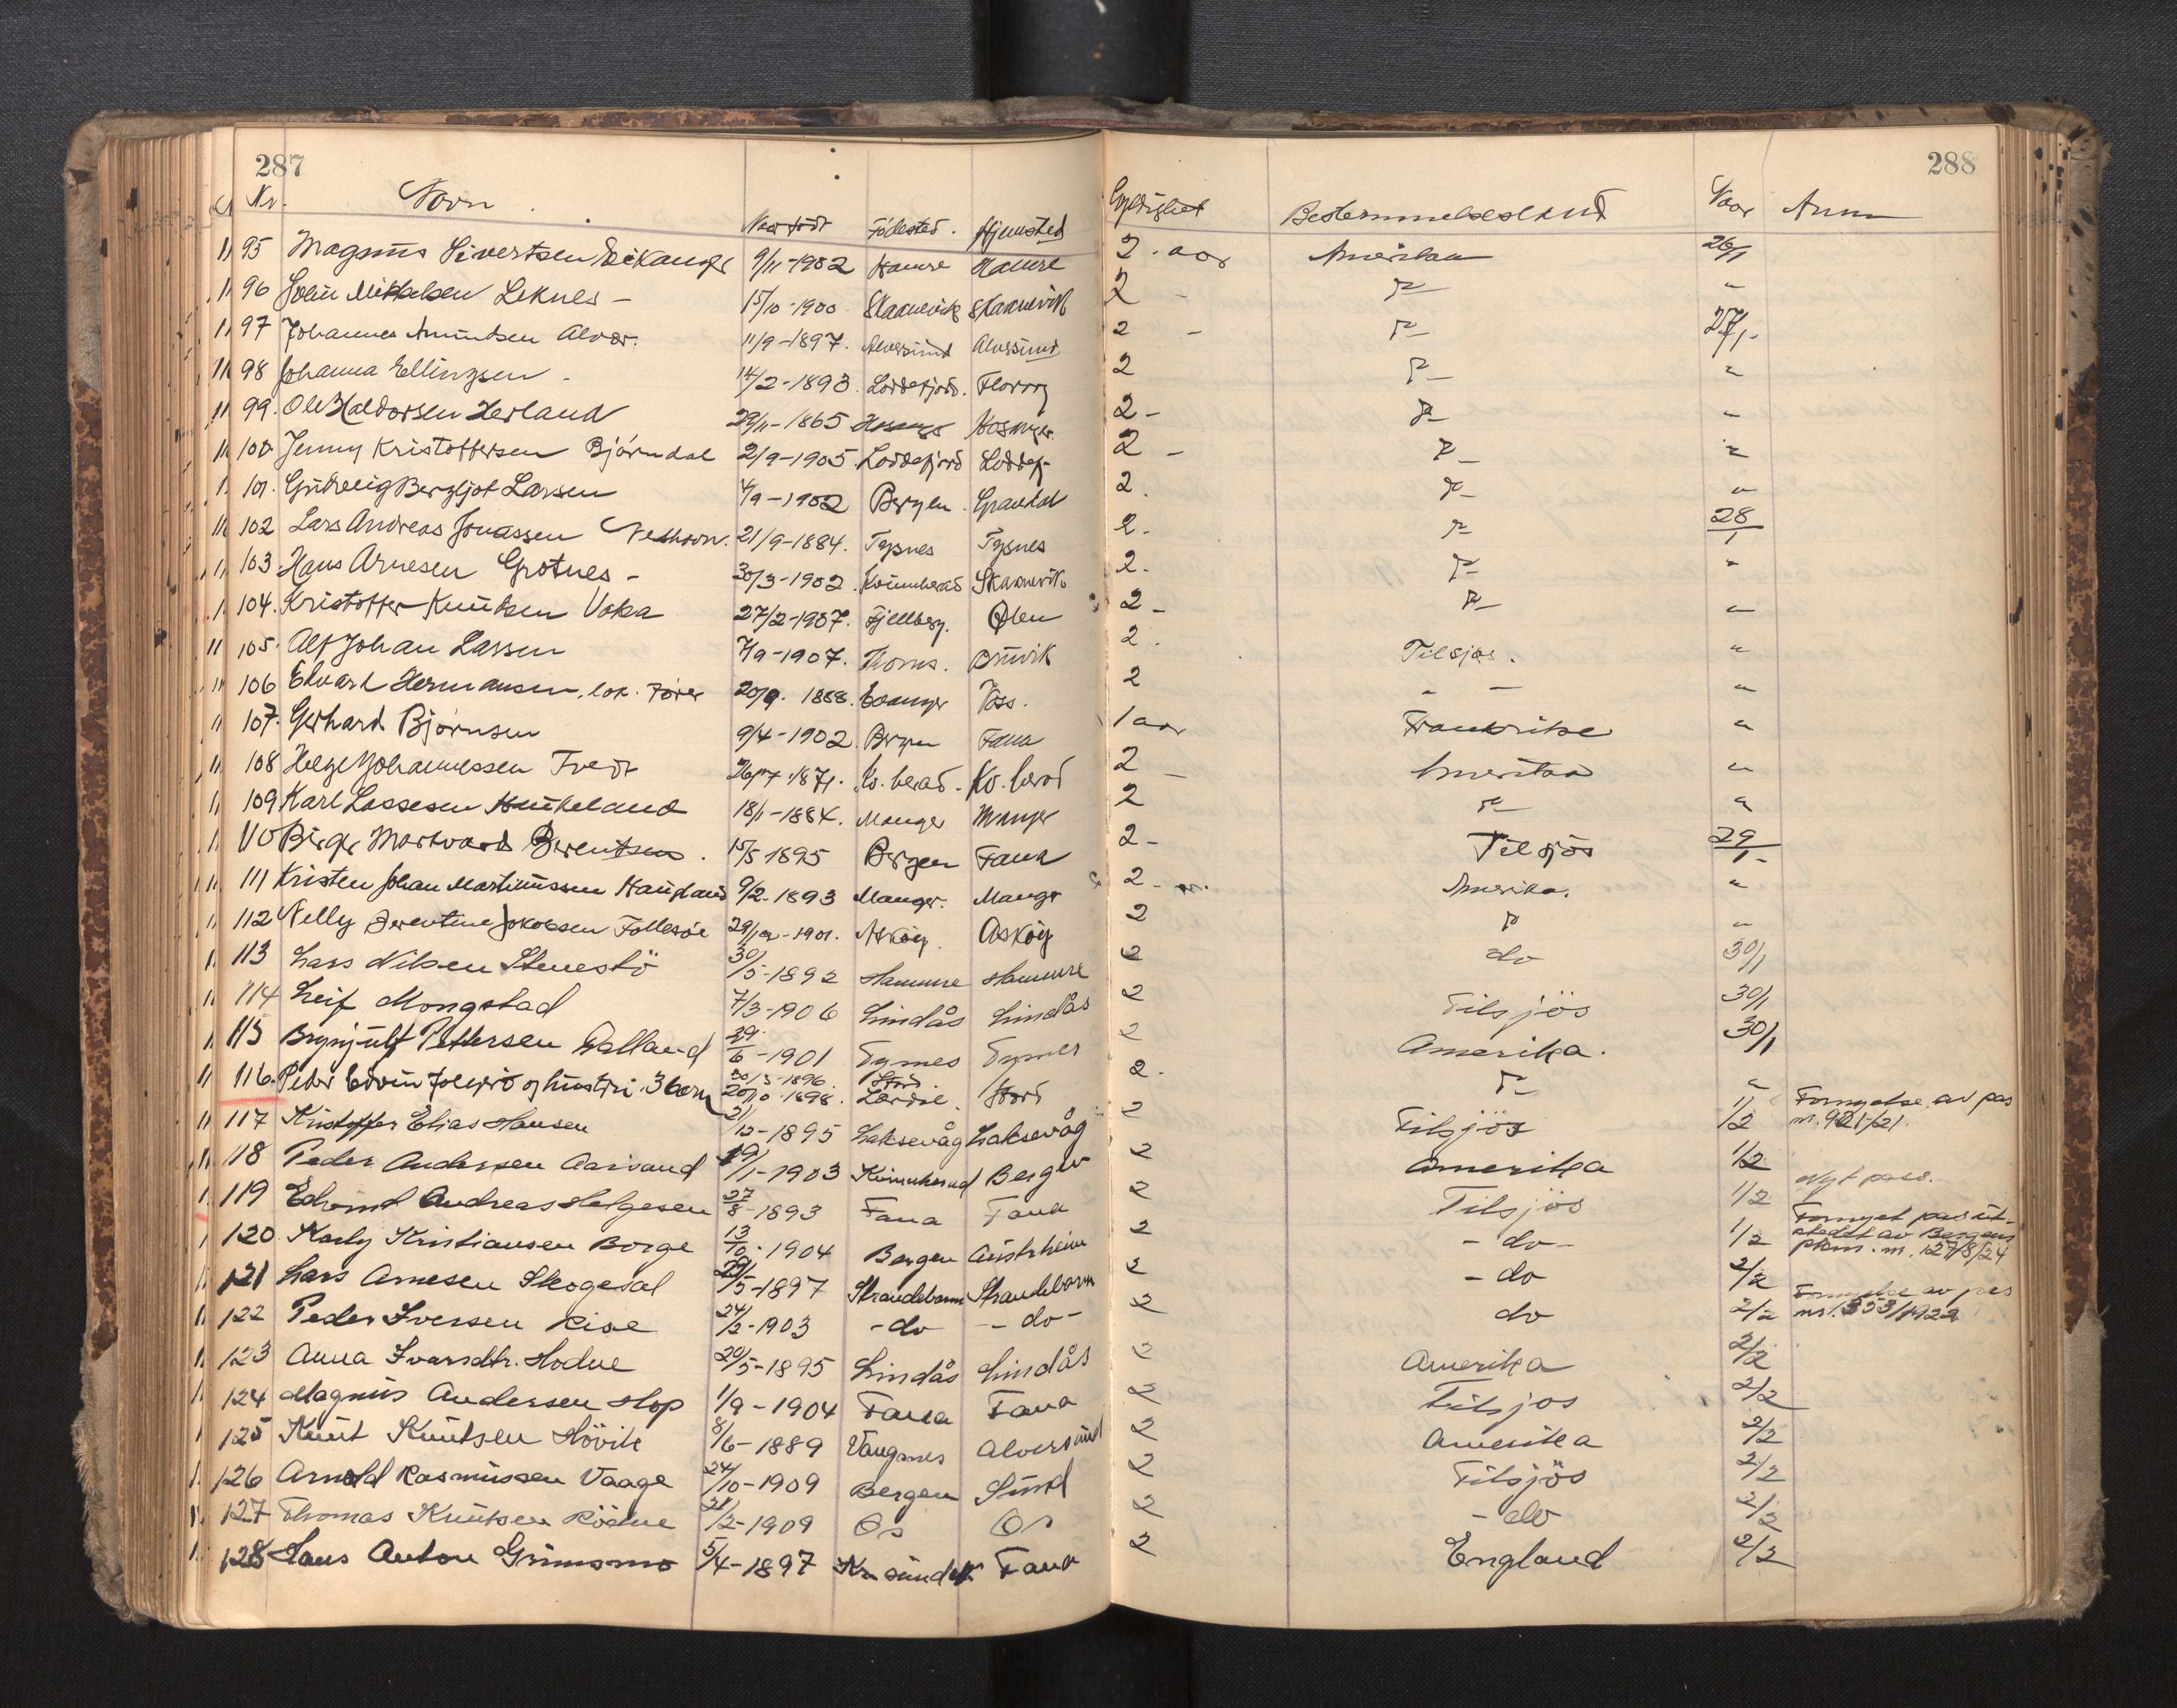 287
288
Nr. Navn Naar født Fødested. Hjemsted Gyldighet Bestemmelsesland Naar Anm
95 Magnus Sivertsen Eikanger 9/11-1902 Hamre Hamre 2. aar Amerika 26/1
96 John Mikkelsen Leknes - 15/10-1900 Skaanevik Skaanevik 2 - " "
97 Johannes Amundsen Alver. 11/9-1897. Alversund Alversund 2 - " 27/1-
98 Johanna Ellingsen - 14/2-1893. Loddefjord. Florvåg 2 " "
99. Ole Haldorsen Herland 29/11-1865 Hosanger Hosanger 2- " "
100 Jenny Kristoffersen Bjørndal 2/9-1905. Loddefjord Loddefj- 2 - " "
101. Gudveig Bergljot Larsen 4/9-1902 Bergen Gravdal 2. " "
102 Lars Andreas Jonassen Neshavn. 21/9-1884. Tysnes Tysnes 2. " 28/1
103. Hans Arnesen Grotnes - 30/3-1902. Kvinnherad Skaanevik 2. " "
104. Kristoffer Knutsen Voka 27/2-1907. Fjellberg. Ølen 2- " "
105. Alf Johan Larsen 7/9-1907. Bruvik 2. Tilsjøs. "
106 Edvard Hermansen, lok. fører 20/9. 1888. Evanger Voss. 2 - - "
107. Gerhard Bjørnsen 9/4-1902. Bergen Fana 1 aar Frankrike "
108 Helge Johannessen Tvedt 26/7 1871. Kv. herad. Kv. herad 2 - Amerika "
109 Karl Lassesen Haukeland 18/1-1884. Manger Manger 2 " "
110 Birger Martvard Berentsen. 15/5 1895 Bergen Fana 2- Tilsjøs 29/1-
111 Kristen Johan Martinussen Haugland 9/2. 1893 Manger. Manger 2- Amerika. "
112 Nelly Berentine Jakobsen Follesøe 29/12-1901. Askøy. Askøy 2 " "
113 Lars Nilsen Stenestö 30/5-1892 Hammre Hammre 2 do 30/1
114 Leif Mongstad 7/3-1906 Lindås Lindås 2 Tilsjös 30/1
115 Brynjulf Pettersen Galland 29/6-1901 Tysnes Tysnes 2 Amerika. 30/1
116. Peder Edvin og hustru. 3 barn 20/3-1896. 20/10 1898. Stord Lerdal. Stord 2. " "
117 Kristoffer Elias Hansen 21/12-1895 Laksevåg Laksevåg 2 Tilsjös 1/2 Fornyelse av pas nr. 921/21.
118 Peder Andersen Aarsand 19/1-1903 Kvinnherad Bergen 2 Amerika 1/2
119 Edvind Andreas Helgesen 27/8-1893 Fana Fana 2 Tilsjös 1/2 Nyt pass.
120. Karly Kristiansen Borge 13/10-1904 Bergen Austrheim 2 - do - 1/2 Fornyet pas ut- stedt av Bergens pkm. nr. 127/8/24
121 Lars Arnesen Skogesal 29/5-1897 Strandebarm Strandebarm 2 - do 2/2
122 Peder Iversen Rise 24/2-1903 - do - do - 2 do 2/2 Fornyelse av pas nr. 353/1922
123 Anna Ivarsdtr. Hodne 20/5-1895 Lindås Lindås 2 Amerika 2/2
124 Magnus Andersen Hop 1/9-1904 Fana Fana 2 Tilsjös 2/2
125 Knut Knutsen Hövik 8/6-1889 Vangsnes Alversund 2 Amerika 2/2
126 Arnold Rasmussen Vaage 24/10-1909 Bergen Sund 2 Tilsjös 2/2
127 Thomas Knutsen Rödne 21/2-1909 Os Os 2 - do 2/2
128 Hans Anton Grimsmo 5/4-1897 Kr. sund N. Fana 2 England 2/2